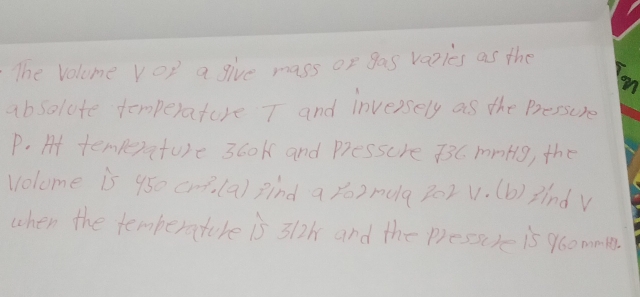 The Volume V of a give mass of gas varies as the
absolute temperature T and inversely as the Pressure
P. At temperature 360K and Pressure 736 mmHg, the
Volume is 450 cm³. (a) Find a formula for V. (b) Find V
when the temperature is 312K and the Pressure is 960mmHg.